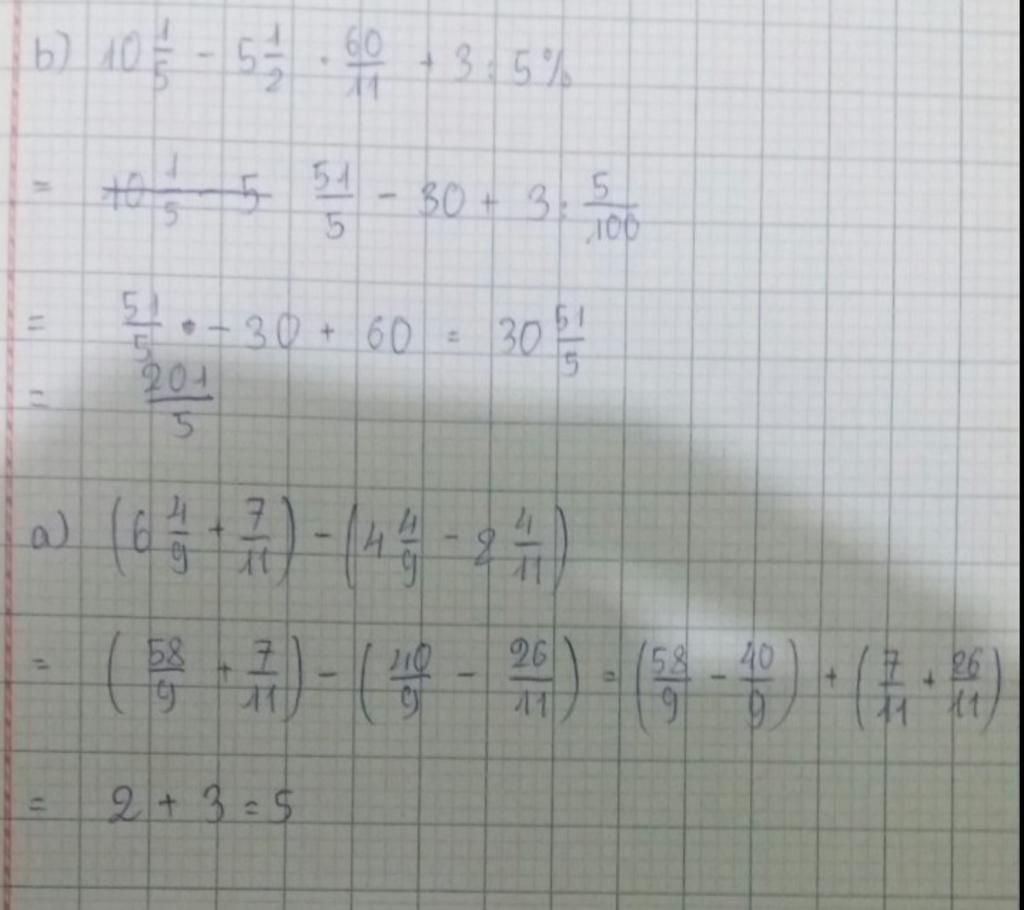 b) 10 1/5 - 5 1/2 . 60/11 + 3 : 5%
= 10 1/5 - 5 51/5 - 30 + 3 : 5/100
= 51/5 - 30 + 60 = 30 51/5
= 201/5
a) (6 4/9 + 7/11) - (4 4/9 - 2 4/11)
= (58/9 + 7/11) - (40/9 - 26/11) = (58/9 - 40/9) + (7/11 + 26/11)
= 2 + 3 = 5